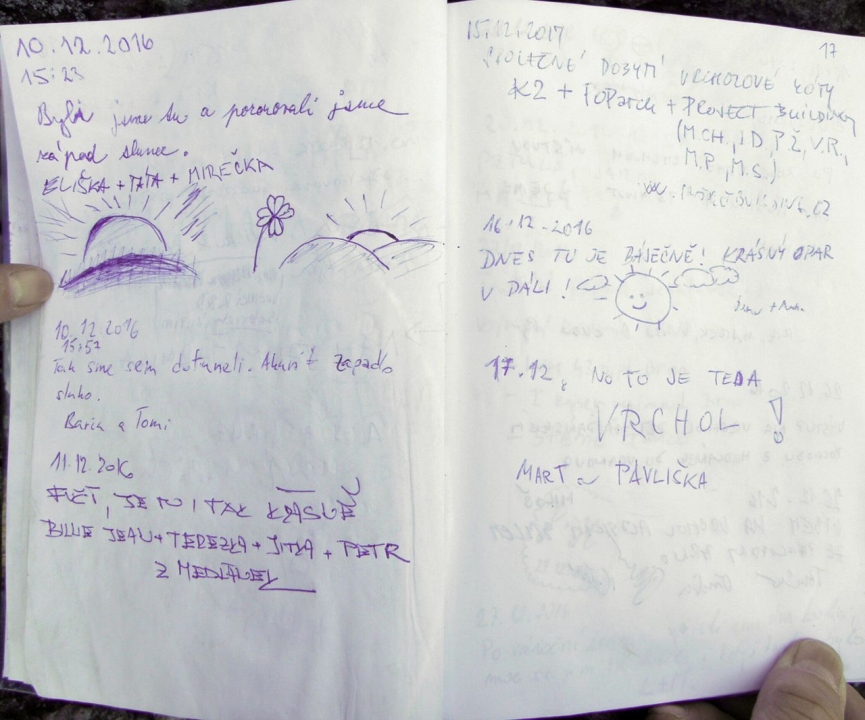 10.12.2016
15:23
Byli jsme tu a pozorovali jsme
západ slunce.
ELIŠKA + TÁTA + MIREČKA
10.12 2016
15:57
Tak sme sem dofuneli. Akorát zapadlo
slunko.
Barča a Tomi
11.12.2016
FUČÍ, JE TU I TAK KRÁSNĚ
BILLIE JEAN + TEREZKA + JITKA + PETR
Z MEDLÁNEK
17
15.12.2017
SPOLEČNÉ DOBYTÍ VRCHOLOVÉ KÓTY
K2 + + PROJECT BUILDING
(M.CH., J D, P.Ž., V.R.,
M.P., M.S.)
16.12.2016
DNES TU JE BÁJEČNĚ! KRÁSNÝ OPAR
V DÁLI!
17.12. NO TO JE TEDA
VRCHOL!
MARŤ a PAVLIČKA